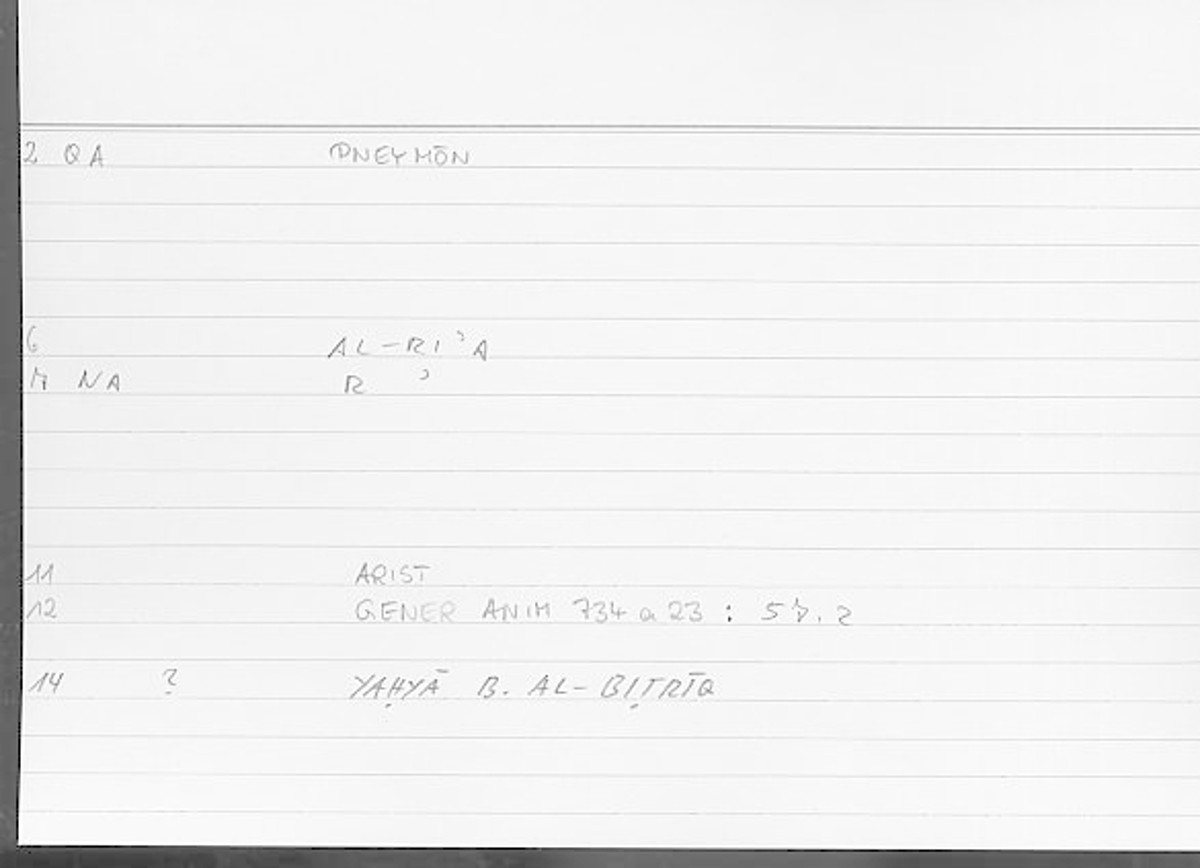 2 QA PNEYMŌN
6 AL-RIʾA
7 NA R ʾ
11 ARIST
12 GENER ANIM 734 a 23 : 57.2
14 ? YAḤYĀ B. AL-BIṬRĪQ